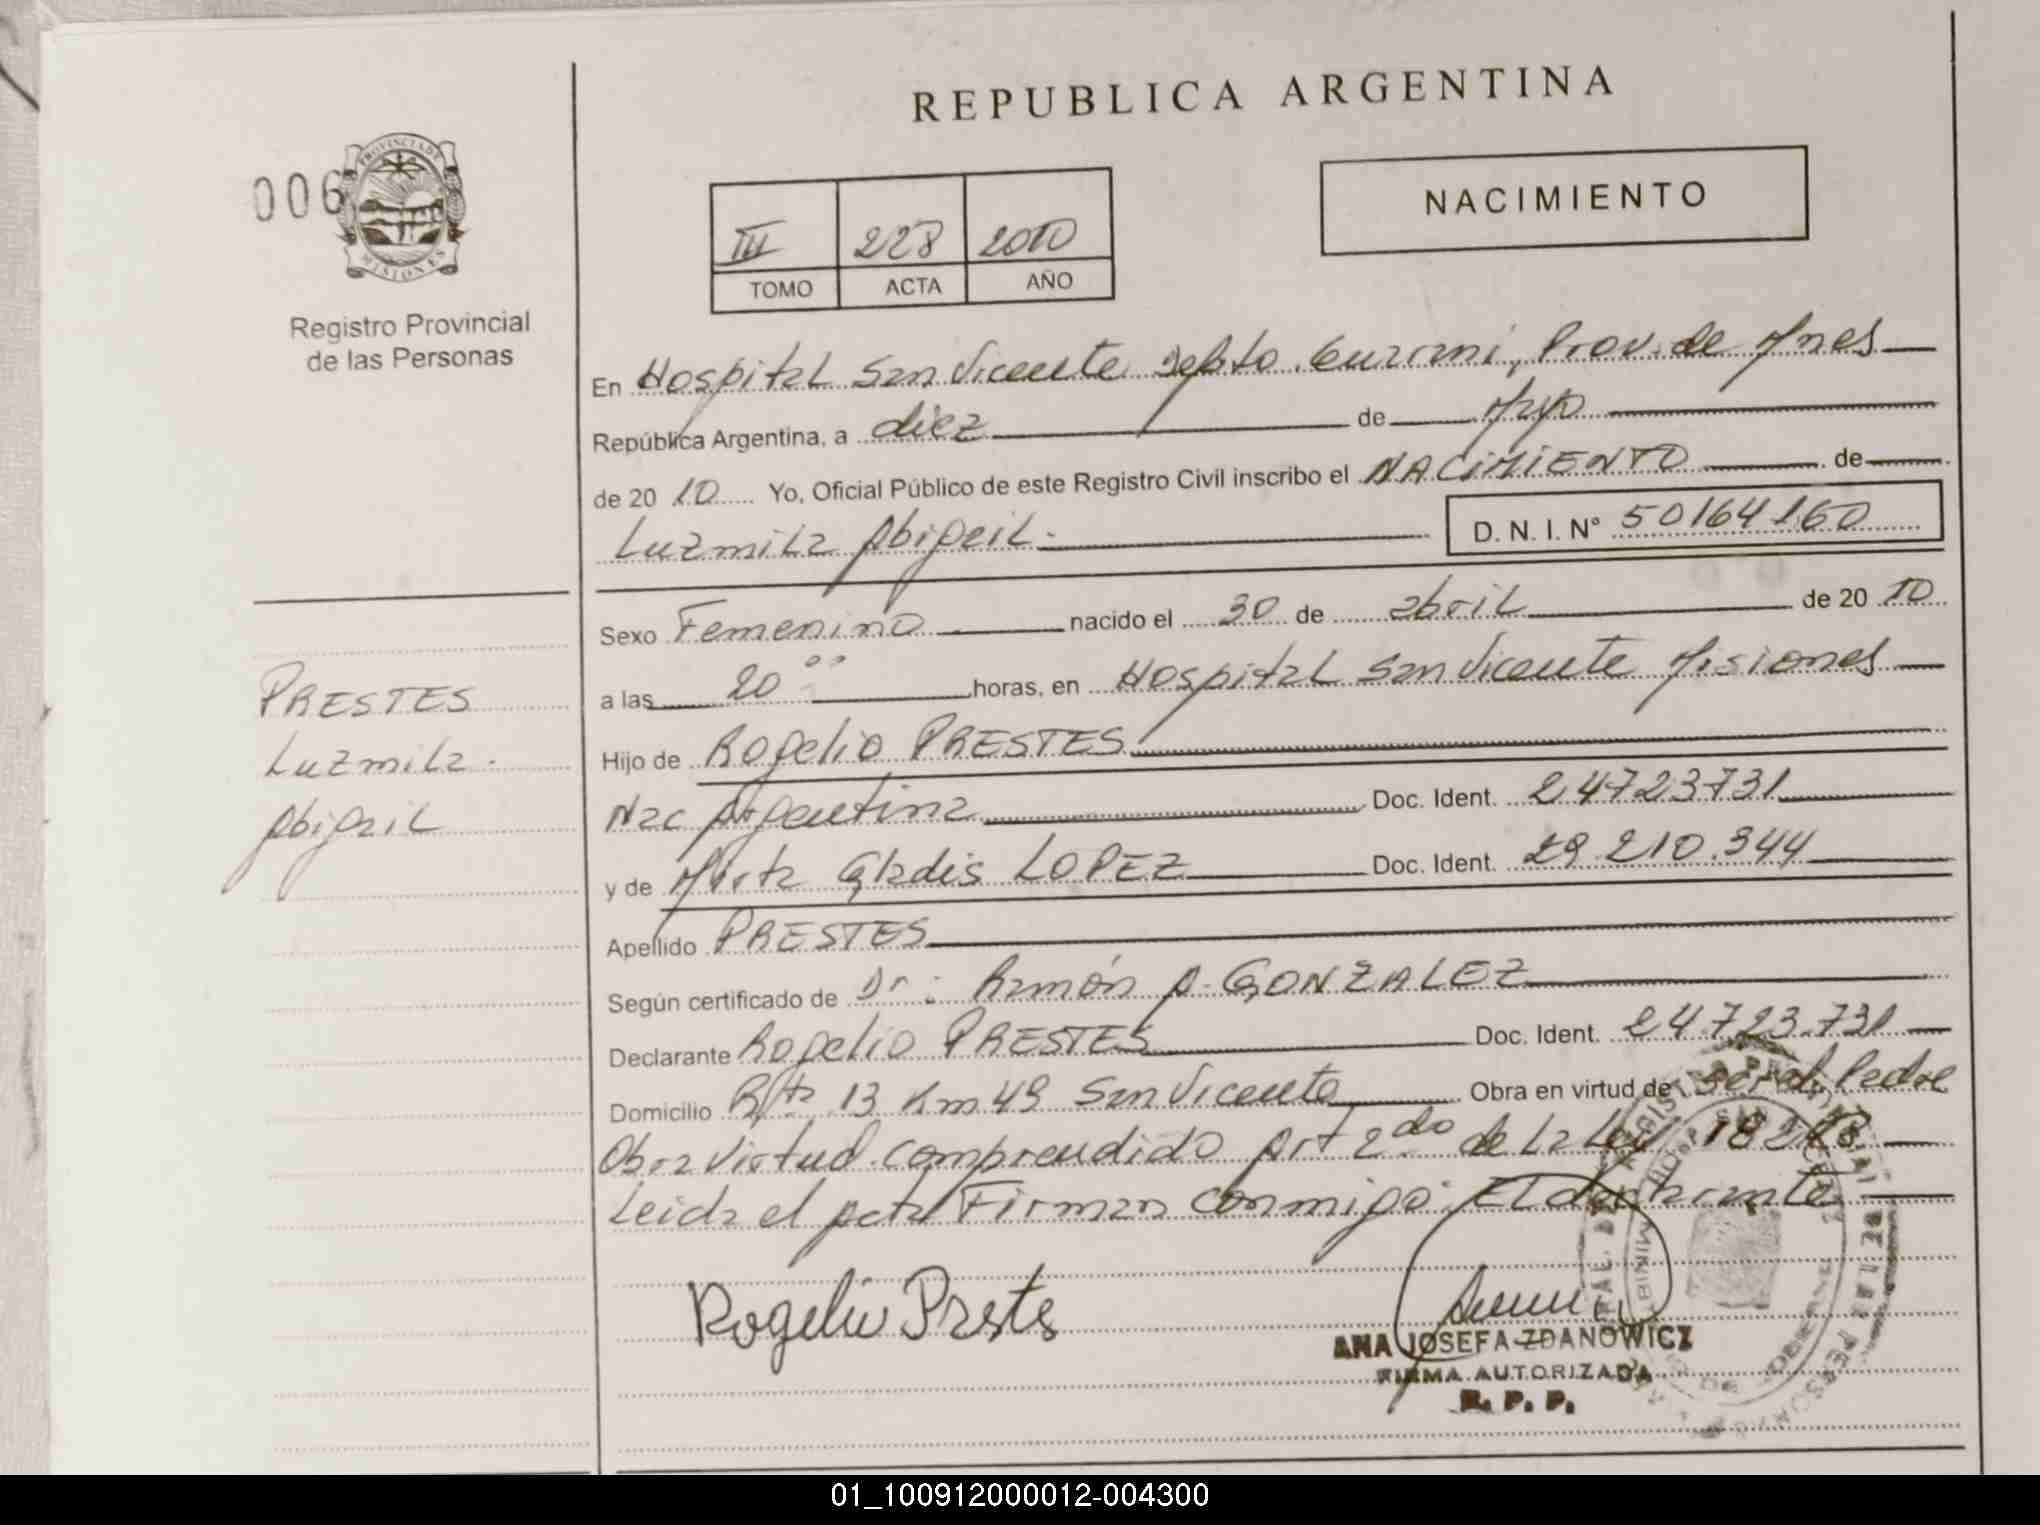 REPUBLICA ARGENTINA
006
PROVINCIA DE
MISIONES
Registro Provincial
de las Personas
NACIMIENTO
III 228 2010
TOMO ACTA AÑO
En Hospital San Vicente Depto. Guarani, Prov. de Mnes
República Argentina, a diez de Mayo
de 20 10 Yo, Oficial Público de este Registro Civil inscribo el NACIMIENTO de
Luzmila Abigail.
D. N. I. N° 50164160
Sexo Femenino nacido el 30 de abril de 20 10
a las 20 ºº horas, en Hospital San Vicente Misiones
PRESTES
Luzmila.
Abigail
Hijo de Rogelio PRESTES
Nac Argentina Doc. Ident. 24723731
y de Mirta Gladis LOPEZ Doc. Ident. 29.210.344
Apellido PRESTES
Según certificado de Dr: Ramón A. GONZALEZ
Declarante Rogelio PRESTES Doc. Ident. 24.723.731
Domicilio Rta 13 Km 49 San Vicente Obra en virtud de Gral. Pedre
Obra virtud comprendido Art 2do de La Ley 18248
Leida el acta Firman conmigo: El declarante
Rogelio Prestes
ANA JOSEFA ZDANOWICZ
FIRMA AUTORIZADA
R. P. P.
01_100912000012-004300